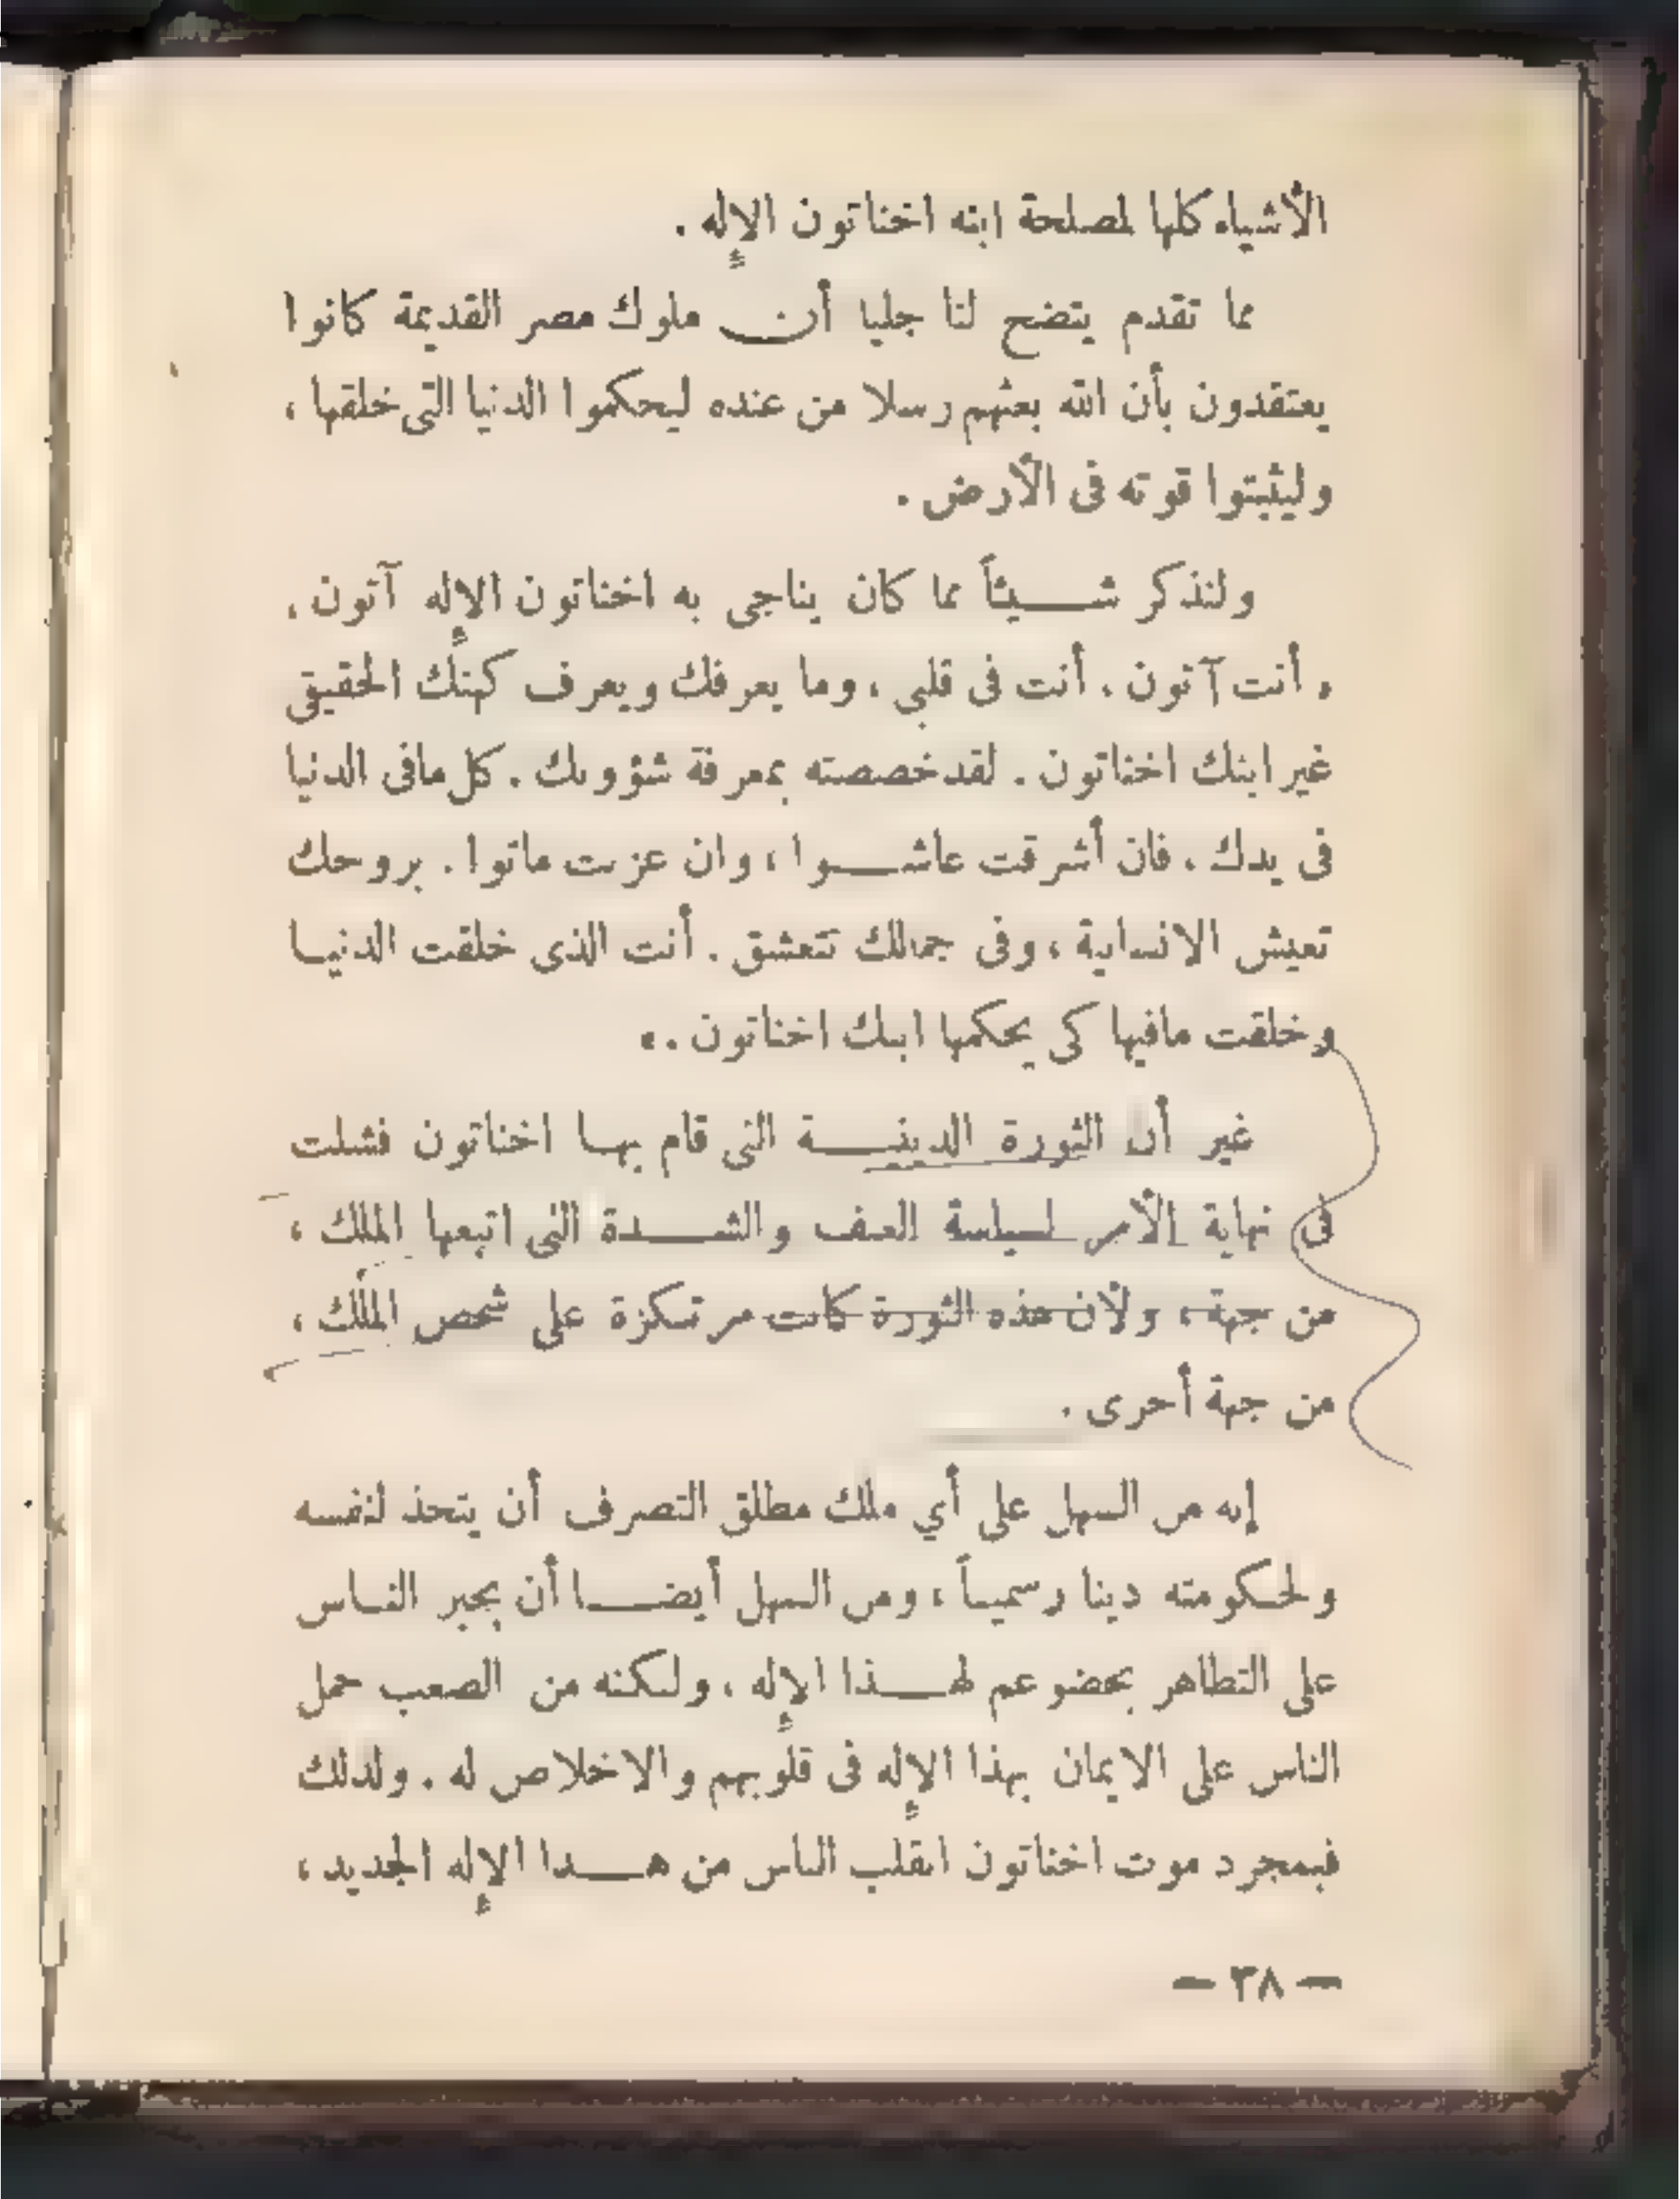 الأشياء كلها لمصلحة ابنه اخناتون الإله .
مما تقدم يتضح لنا جليا أن ملوك مصر القديمة كانوا
يعتقدون بأن الله بعثهم رسلا من عنده ليحكموا الدنيا التى خلقها ،
وليثبتوا قوته فى الأرض .
ولنذكر شيئاً مما كان يناجى به اخناتون الإله آتون .
« أنت آتون . أنت فى قلبى ، وما يعرفك ويعرف كهنك الحقيقى
غير ابنك اخناتون . لقد خصصته بمعرفة شؤونك . كل مافى الدنيا
فى يدك ، فان أشرقت عاشوا ، وان غربت ماتوا . بروحك
تعيش الانسانية ، وفى جمالك تتعشق . أنت الذى خلقت الدنيا
وخلقت مافيها كى يحكمها ابنك اخناتون . »
غير أن الثورة الدينية التى قام بها اخناتون فشلت
فى نهاية الأمر لسياسة العنف والشدة التى اتبعها الملك ،
من جهة ، ولأن هذه الثورة كانت مرتكزة على شخص الملك ،
من جهة أخرى .
إنه من السهل على أي ملك مطلق التصرف أن يتخذ لنفسه
ولحكومته دينا رسمياً ، ومن السهل أيضا أن يجبر الناس
على التظاهر بخضوعهم لهذا الإله ، ولكنه من الصعب حمل
الناس على الايمان بهذا الإله فى قلوبهم والاخلاص له . ولذلك
فبمجرد موت اخناتون انقلب الناس من هذا الإله الجديد ،
— ٣٨ —